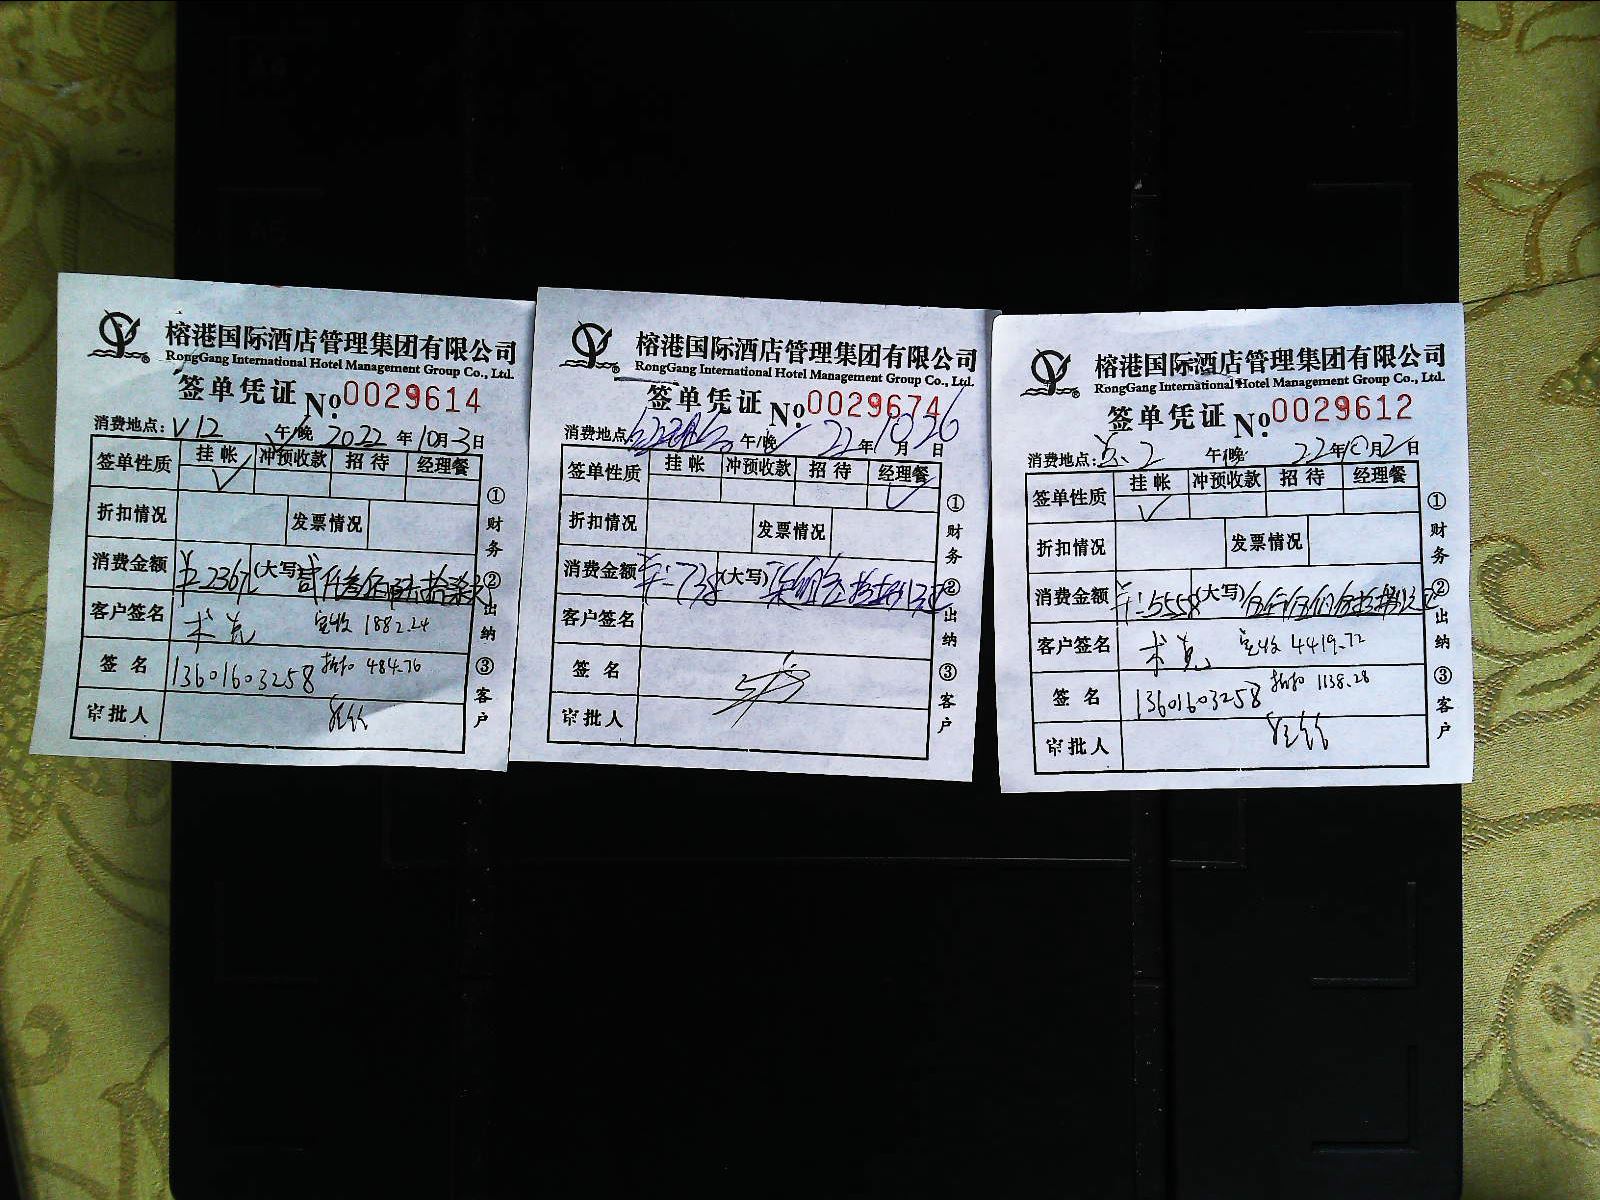 榕港国际酒店管理集团有限公司
RongGang International Hotel Management Group Co., Ltd.
签单凭证 No. 0029614
消费地点: V12 午/晚 2022 年 10 月 3 日
签单性质 挂帐 冲预收款 招待 经理餐
✓
折扣情况 发票情况
消费金额 ¥:2367 (大写) 贰仟叁佰陆拾柒元
客户签名 实收 1882.24
签名 13601603258 折扣 484.76
审批人
①财务 ②出纳 ③客户
榕港国际酒店管理集团有限公司
RongGang International Hotel Management Group Co., Ltd.
签单凭证 No. 0029674
消费地点 午/晚 22 年 10 月 26 日
签单性质 挂帐 冲预收款 招待 经理餐
✓
折扣情况 发票情况
消费金额 ¥:738 (大写) 柒佰叁拾捌元
客户签名
签名
审批人
①财务 ②出纳 ③客户
榕港国际酒店管理集团有限公司
RongGang International Hotel Management Group Co., Ltd.
签单凭证 No. 0029612
消费地点: 2 午/晚 22 年 10 月 2 日
签单性质 挂帐 冲预收款 招待 经理餐
✓
折扣情况 发票情况
消费金额 ¥:5558 (大写) 伍仟伍佰伍拾捌元
客户签名 实收 4419.72
签名 13601603258 折扣 1138.28
审批人
①财务 ②出纳 ③客户